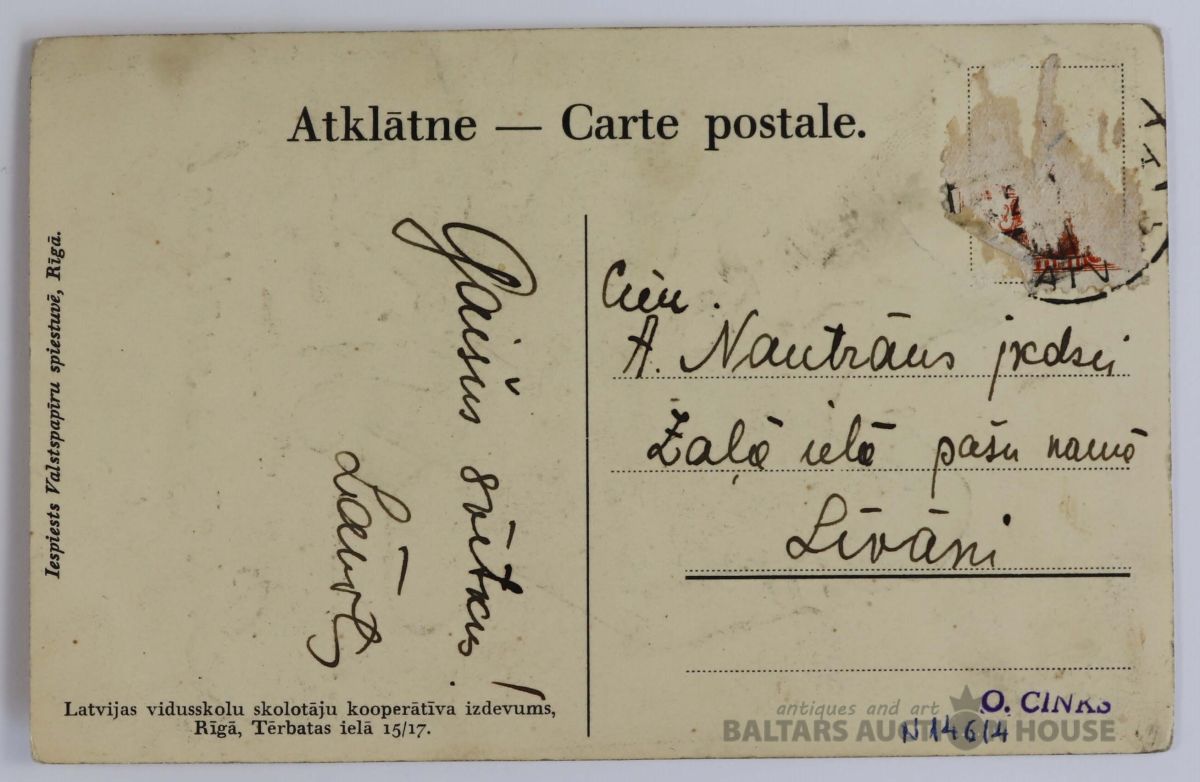 Atklātne — Carte postale.
Iespiests Valstspapīru spiestuvē, Rīgā.
Gaišus svētkus!
Cien.
A. Nautrāns jkdzei
Zaļā ielā pašu namā
Līvāni
Latvijas vidusskolu skolotāju kooperātīva izdevums,
Rīgā, Tērbatas ielā 15/17.
O. CINKS
N 14614
antiques and art
BALTARS AUCTION HOUSE